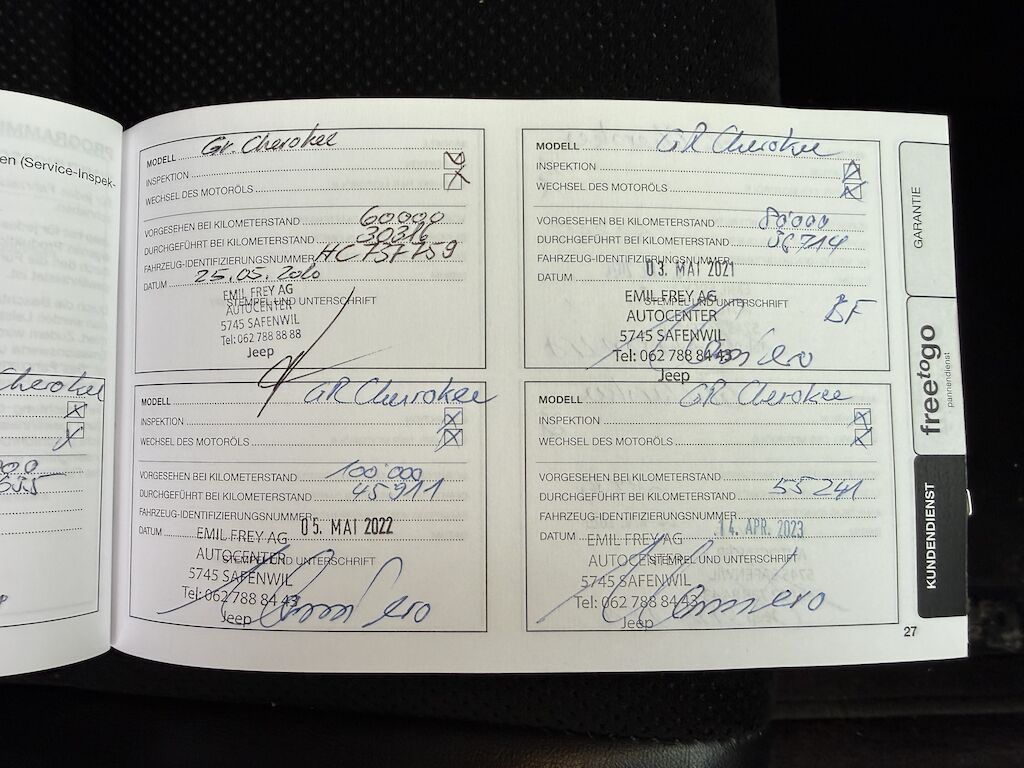 en (Service-Inspek-
Cherokee
MODELL Gr. Cherokee
INSPEKTION
WECHSEL DES MOTORÖLS
VORGESEHEN BEI KILOMETERSTAND 60000
DURCHGEFÜHRT BEI KILOMETERSTAND 30316
FAHRZEUG-IDENTIFIZIERUNGSNUMMER
DATUM 25.05.2020
STEMPEL UND UNTERSCHRIFT
EMIL FREY AG
AUTOCENTER
5745 SAFENWIL
Tel: 062 788 88 88
Jeep
MODELL GR Cherokee
INSPEKTION
WECHSEL DES MOTORÖLS
VORGESEHEN BEI KILOMETERSTAND 80'000
DURCHGEFÜHRT BEI KILOMETERSTAND
FAHRZEUG-IDENTIFIZIERUNGSNUMMER
DATUM 03. MAI 2021
STEMPEL UND UNTERSCHRIFT
EMIL FREY AG
AUTOCENTER
5745 SAFENWIL
Tel: 062 788 84 43
Jeep
BF
MODELL GR Cherokee
INSPEKTION
WECHSEL DES MOTORÖLS
VORGESEHEN BEI KILOMETERSTAND 100'000
DURCHGEFÜHRT BEI KILOMETERSTAND 45911
FAHRZEUG-IDENTIFIZIERUNGSNUMMER
DATUM 05. MAI 2022
STEMPEL UND UNTERSCHRIFT
EMIL FREY AG
AUTOCENTER
5745 SAFENWIL
Tel: 062 788 84 43
Jeep
MODELL GR Cherokee
INSPEKTION
WECHSEL DES MOTORÖLS
VORGESEHEN BEI KILOMETERSTAND
DURCHGEFÜHRT BEI KILOMETERSTAND 55241
FAHRZEUG-IDENTIFIZIERUNGSNUMMER
DATUM 14. APR. 2023
STEMPEL UND UNTERSCHRIFT
EMIL FREY AG
AUTOCENTER
5745 SAFENWIL
Tel: 062 788 84 43
Jeep
GARANTIE
freetogo
pannendienst
KUNDENDIENST
27